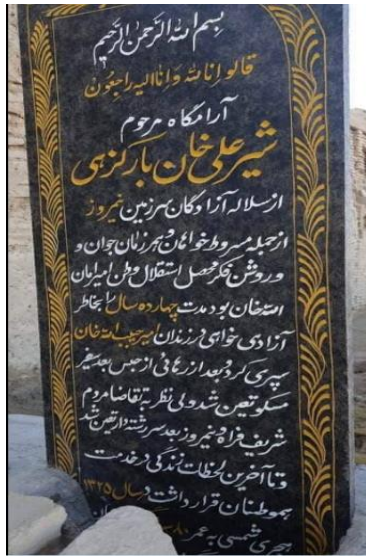 بسم الله الرحمن الرحیم
قالو انا لله و انا الیه راجعون
آرامگاه مرحوم
شیر علی خان بارکزهی
از سلاله آزادگان سرزمین نیمروز
از جمله مسروطه خواهان و همرزمان جوان و
و روشن فکر محصل استقلال وطن امیر امان
الله خان بود مدت چهارده سال را بخاطر
آزادی خواهی در زندان امیر حبیب الله خان
سپری کرد و بعد از رهائی از حبس بعد سفیر
مسکو تعین شد ولی نظر به تقاضا مردم
شریف فراه و نیمروز بعد سررشته دار تعین شد
و تا آخرین لحظات زندگی در خدمت
هموطنان قرار داشت در سال ۱۳۲۵
هجری شمسی به عمر ۸۰